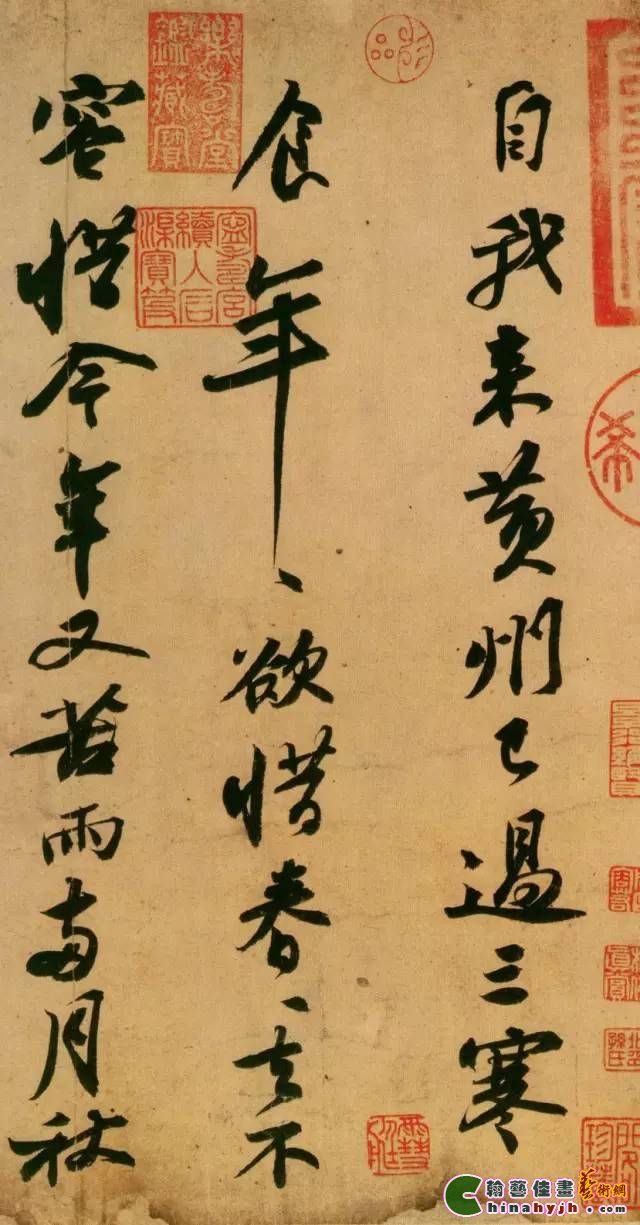 自我来黄州已過三寒
食年〻欲惜春〻去不
容惜今年又苦雨兩月秋
翰藝佳畫藝術網
hinahyjh.com